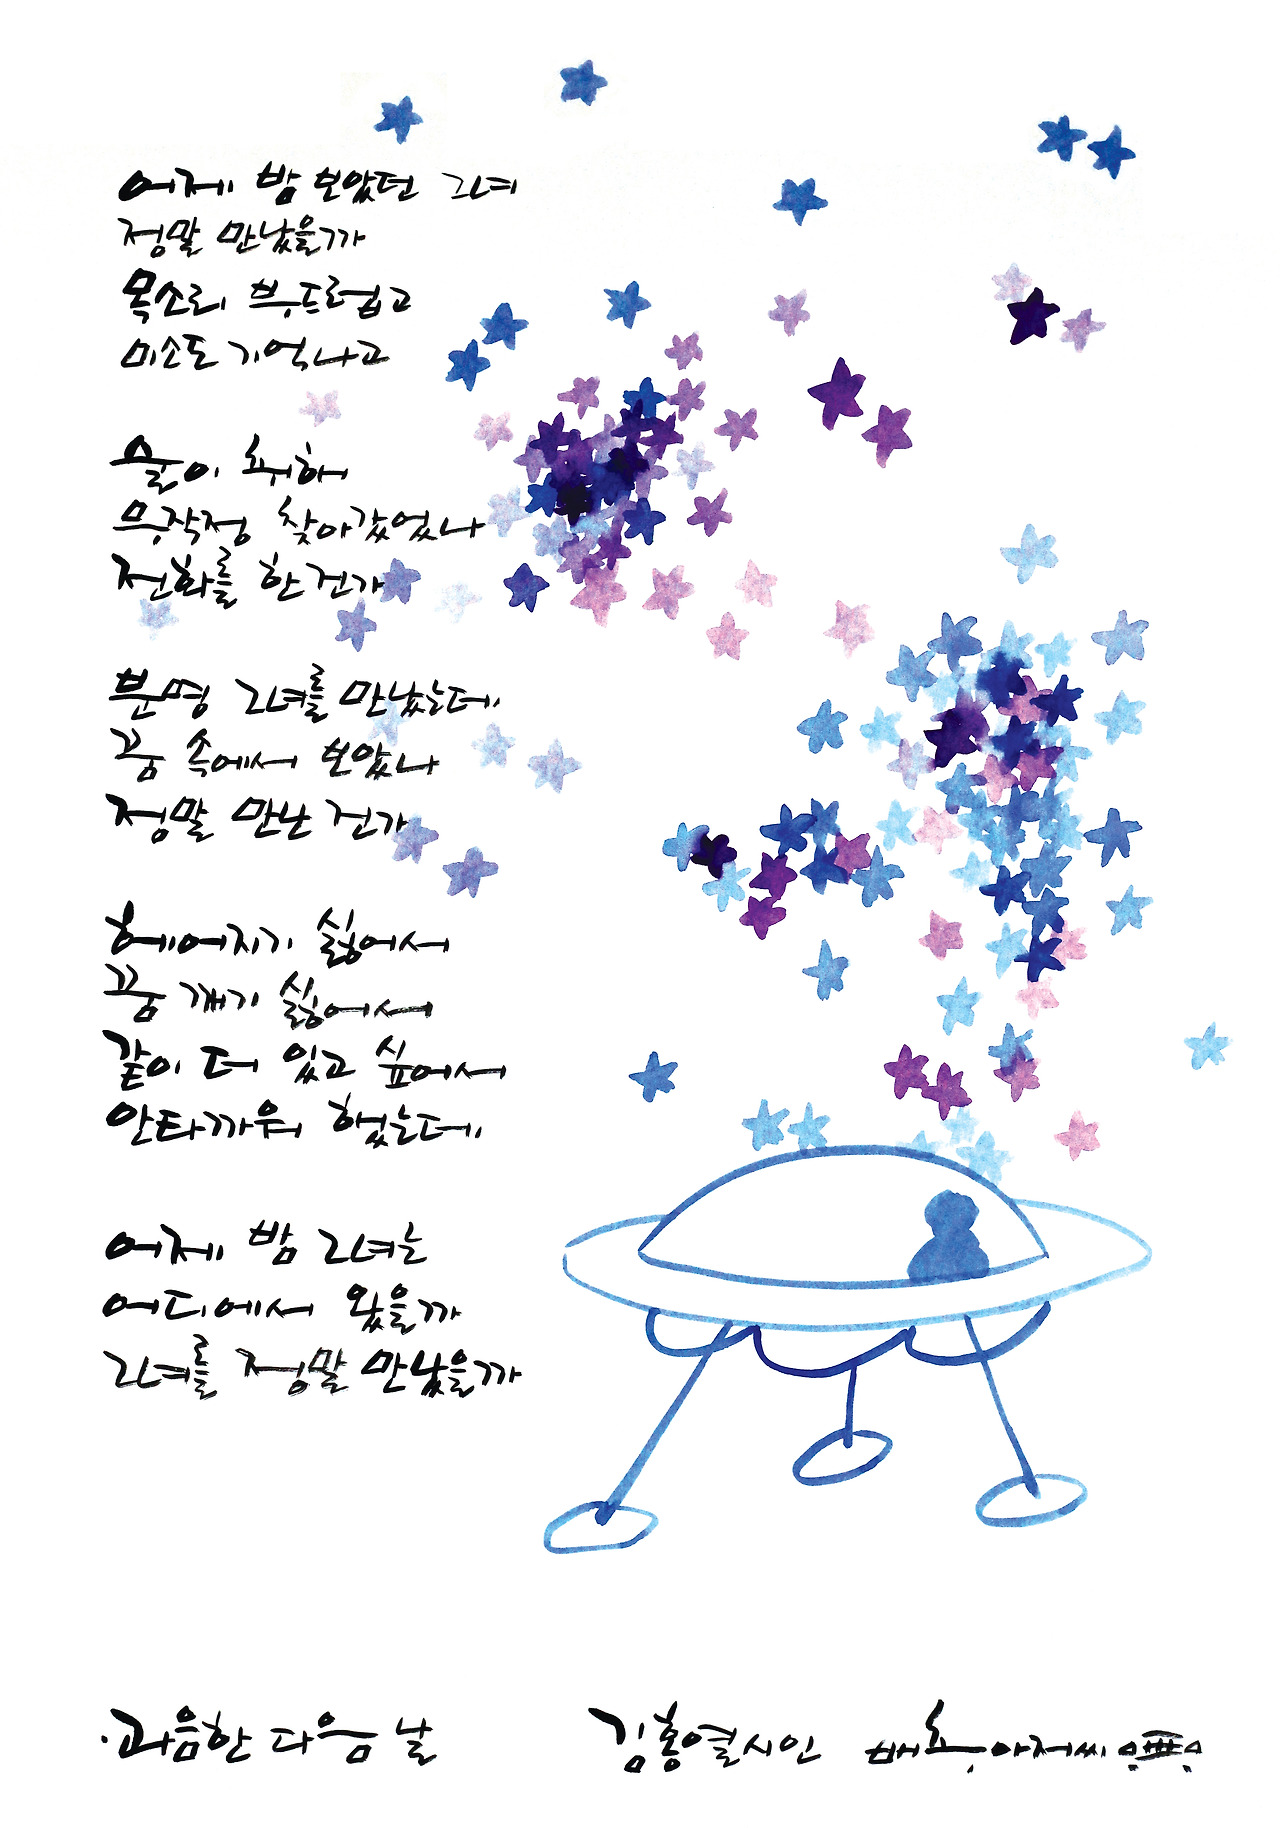 어제 밤 보았던 그녀
정말 만났을까
목소리 부드럽고
미소도 기억나고
술이 취해
무작정 찾아갔었나
전화를 한건가
분명 그녀를 만났는데
꿈 속에서 보았나
정말 만난 건가
헤어지기 싫어서
꿈 깨기 싫어서
같이 더 있고 싶어서
안타까워 했는데
어제 밤 그녀는
어디에서 왔을까
그녀를 정말 만났을까
·과음한 다음 날
김홍열시인 배후아저씨